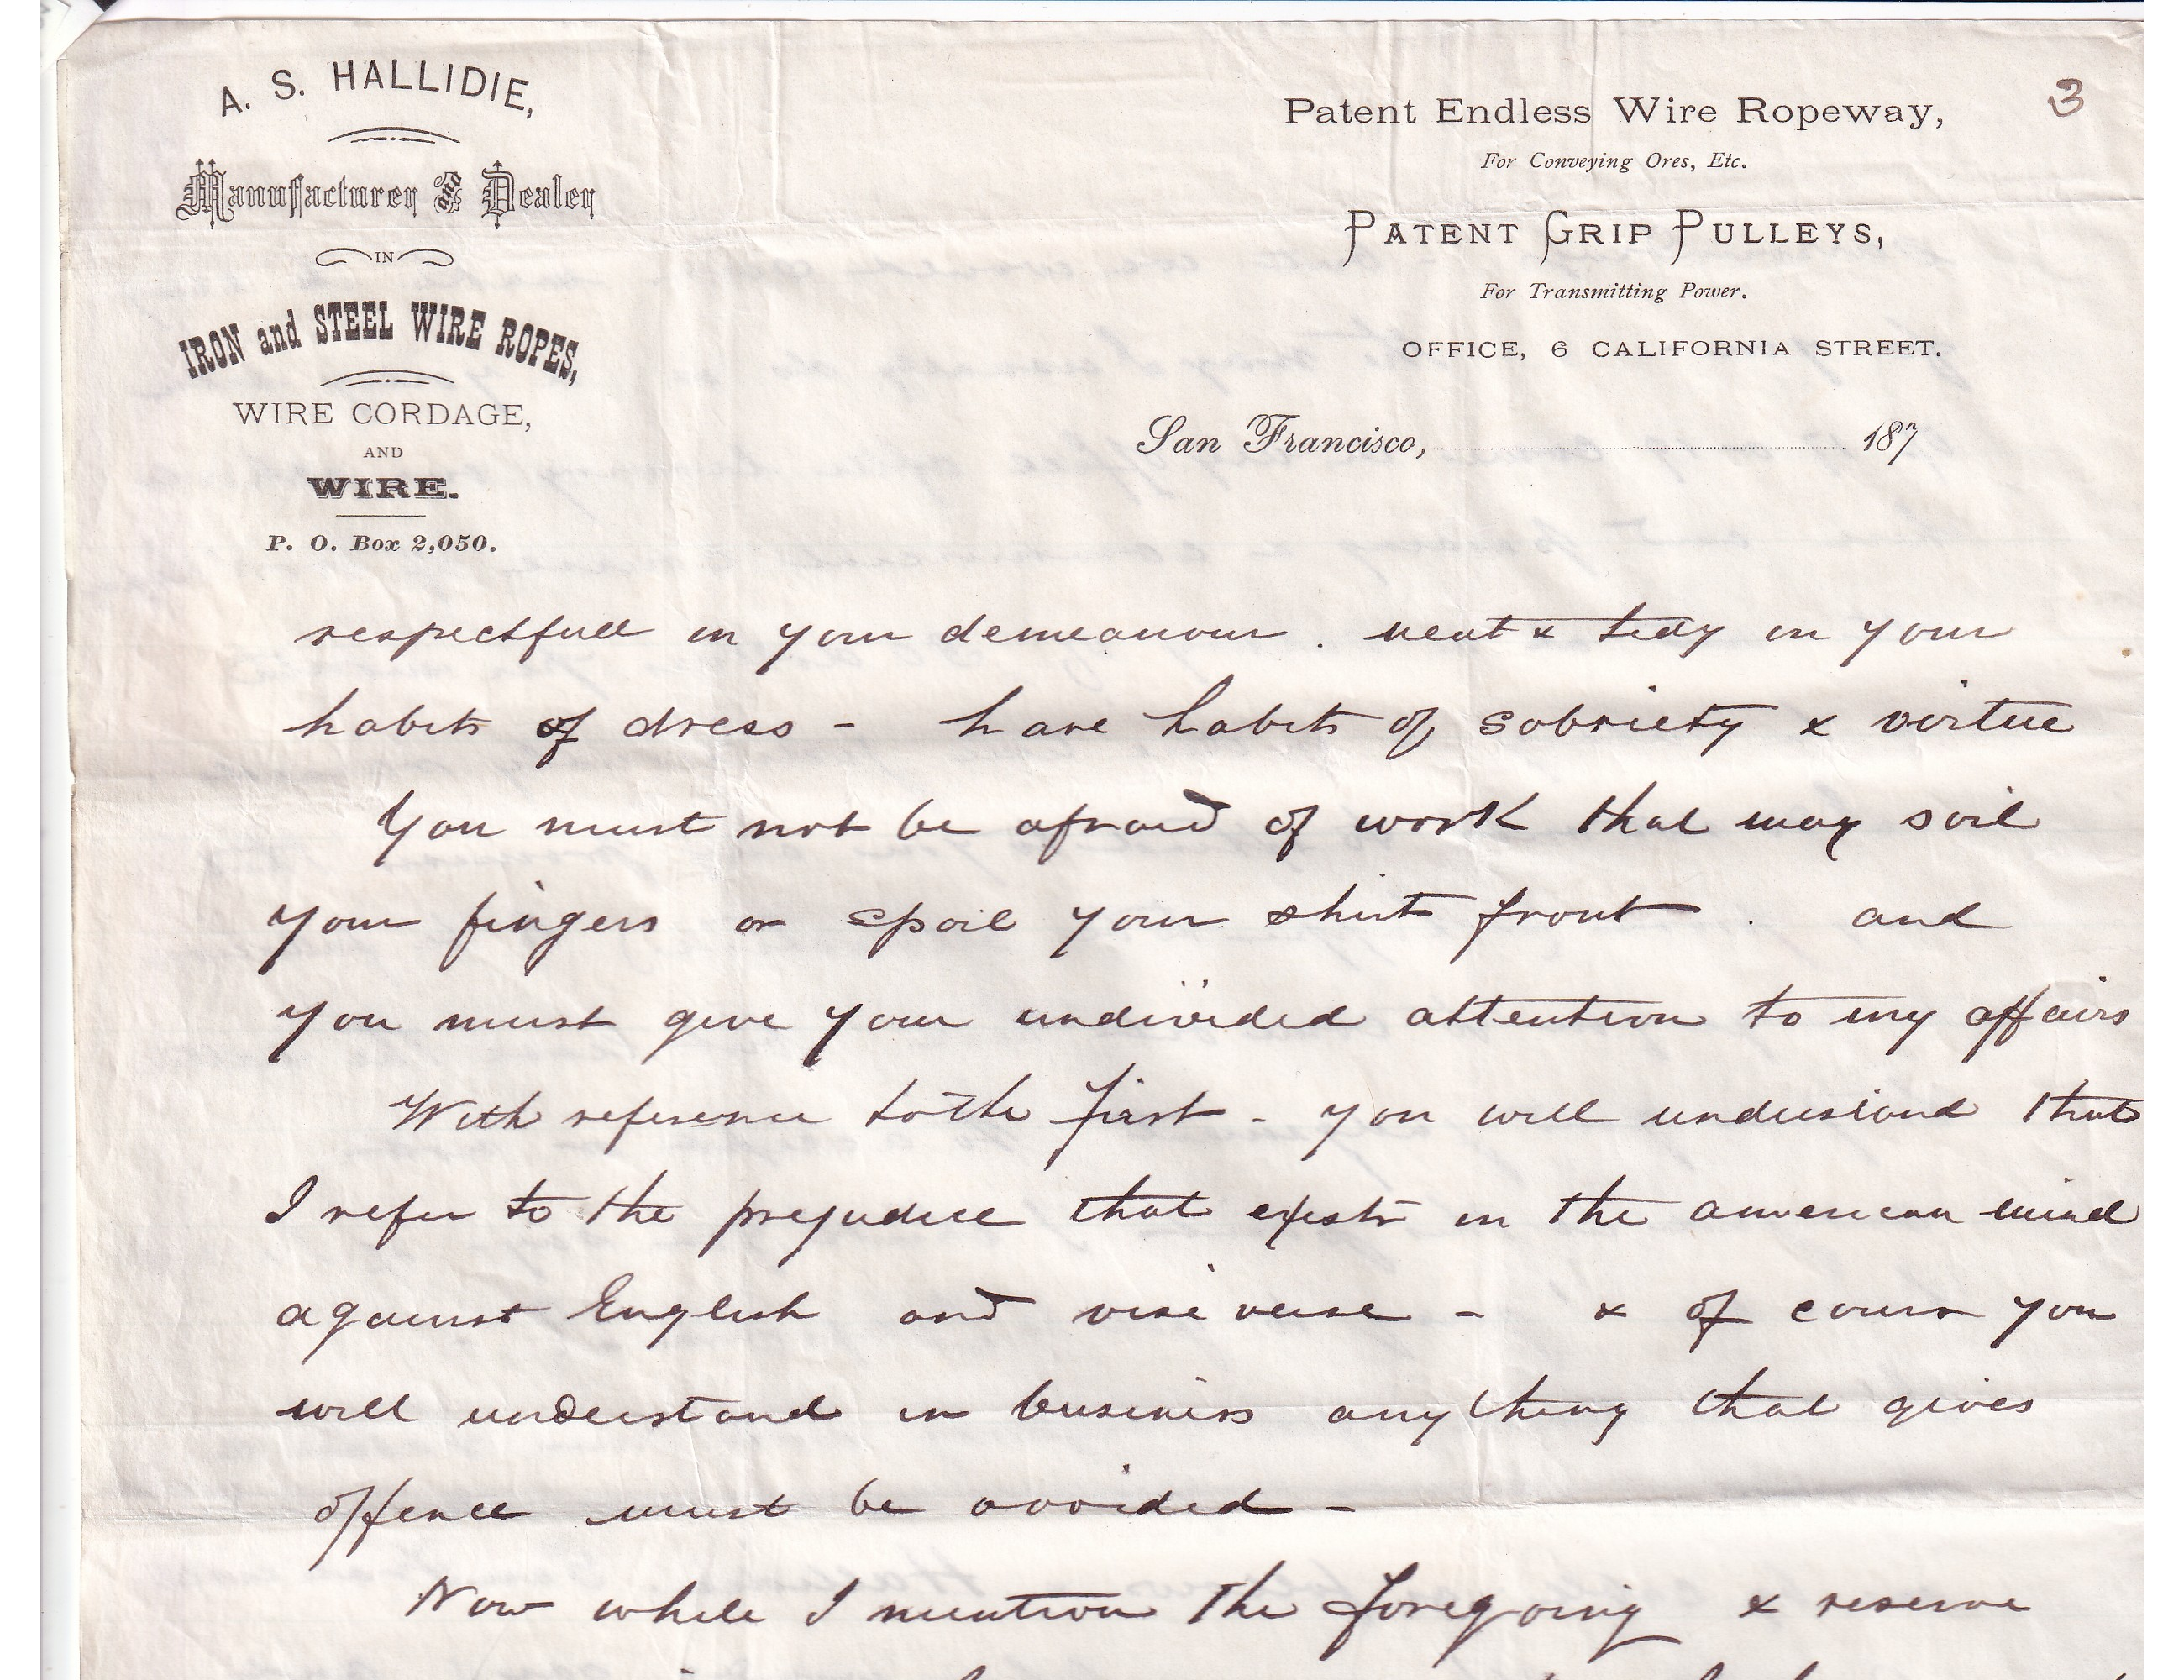 A. S. HALLIDIE,
Manufacturer and Dealer
IN
IRON and STEEL WIRE ROPES,
WIRE CORDAGE,
AND
WIRE.
P. O. Box 2,050.
3
Patent Endless Wire Ropeway,
For Conveying Ores, Etc.
PATENT GRIP PULLEYS,
For Transmitting Power.
OFFICE, 6 CALIFORNIA STREET.
San Francisco, 187
respectfull in your demeanour. neat & tidy in your
habits of dress - have habits of sobriety & virtue
You must not be afraid of work that may soil
your fingers or spoil your shirt front . and
you must give your undivided attention to my affairs
With reference to the first - you will understand that
I refer to the prejudice that exists in the american mind
against English and vise verse - & of course you
will understand in business any thing that gives
offence must be avoided -
Now while I mention the foregoing & reserve